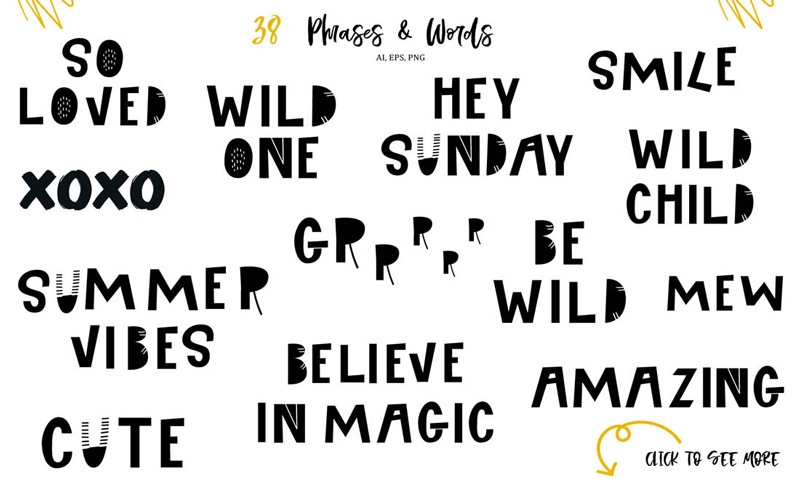 38 Phrases & Words
AI, EPS, PNG
SO
LOVED
WILD
ONE
HEY
SUNDAY
SMILE
XOXO
WILD
CHILD
GRRRRR
BE
WILD
MEW
SUMMER
VIBES
BELIEVE
IN MAGIC
AMAZING
CUTE
CLICK TO SEE MORE